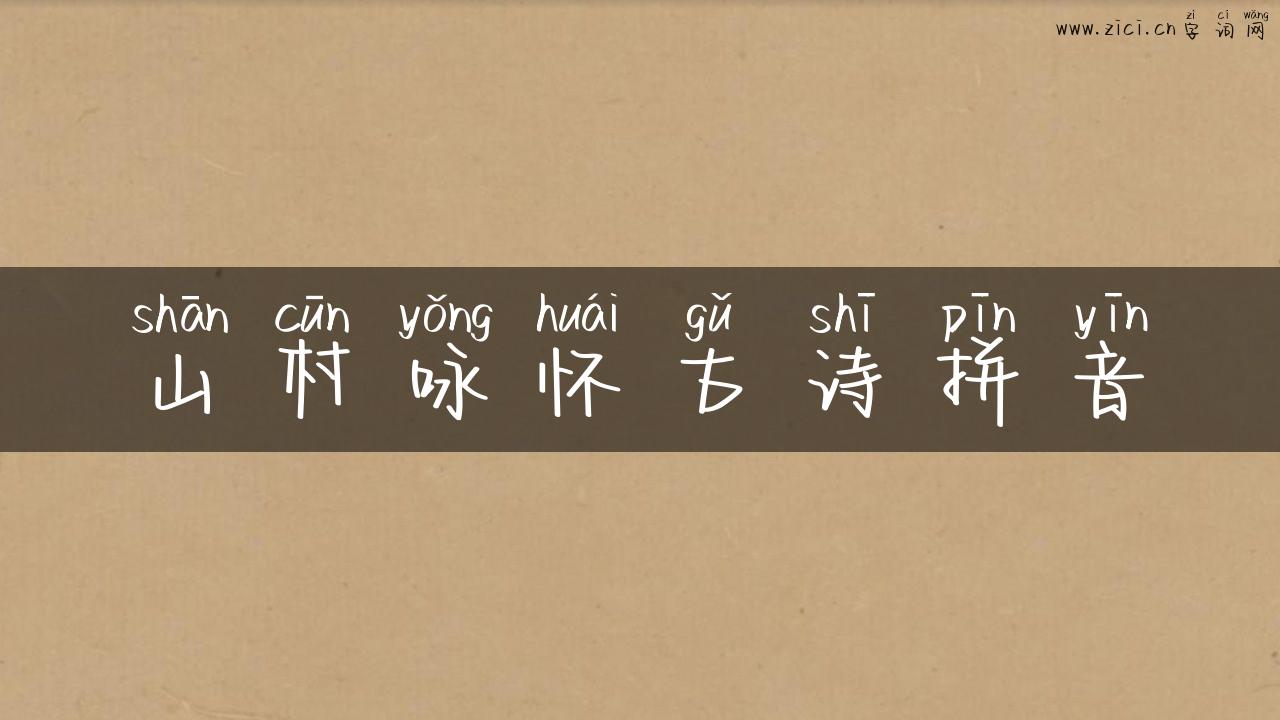 zì cí wǎng
www.zici.cn 字 词 网
shān cūn yǒng huái gǔ shī pīn yīn
山 村 咏 怀 古 诗 拼 音